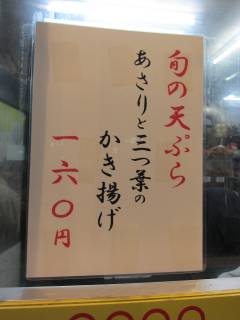 旬の天ぷら
あさりと三つ葉の
かき揚げ
一六〇円